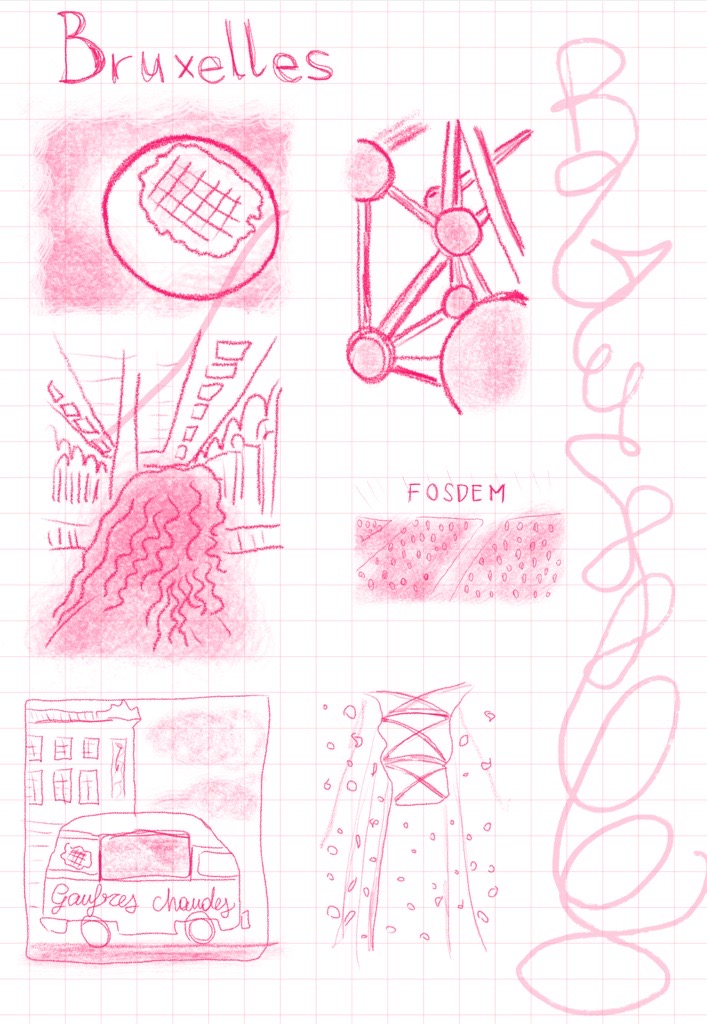 Bruxelles
FOSDEM
Gaufres chaudes